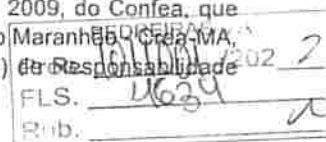 2009, do Confea, que
o Maranhão, Crea-MA,
) de Responsabilidade
202 2
FLS. 4634
Rub.